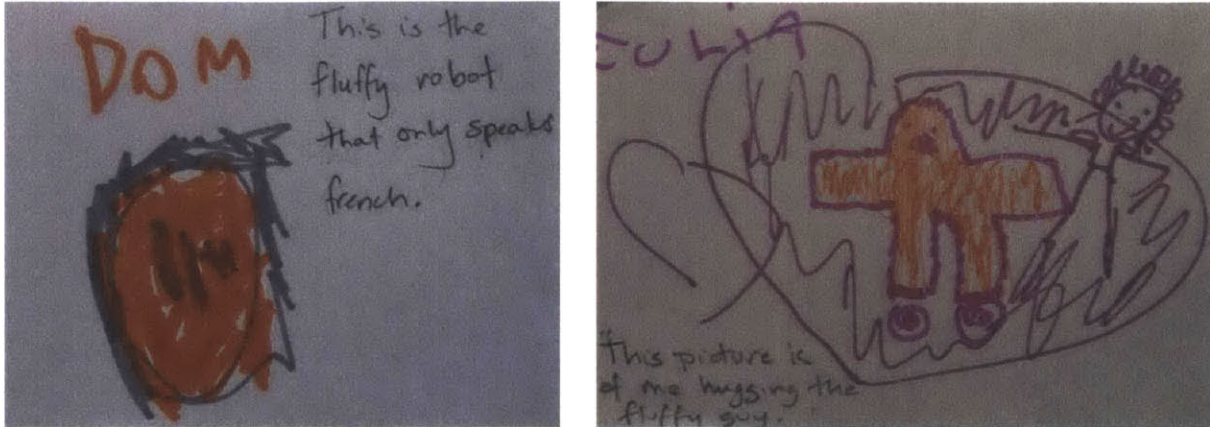 DOM
This is the
fluffy robot
that only speaks
french.
EULIA
"This picture is
of me hugging the
fluffy guy.